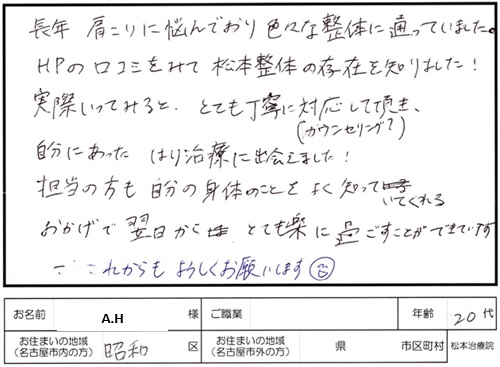 長年 肩こりに悩んでおり 色々な整体に通っていました。
HPの口コミをみて 松本整体の存在を知りました!
実際いってみると、とても丁寧に対応して頂き、
(カウンセリング?)
自分にあった はり治療に出会えました!
担当の方も 自分の身体のことをよく知って
いてくれる
おかげで 翌日から とても楽に過ごすことができています
これからも よろしくお願いします
お名前 A.H 様 ご職業 年齢 20代
お住まいの地域 (名古屋市内の方) 昭和 区 お住まいの地域 (名古屋市外の方) 県 市区町村 松本治療院